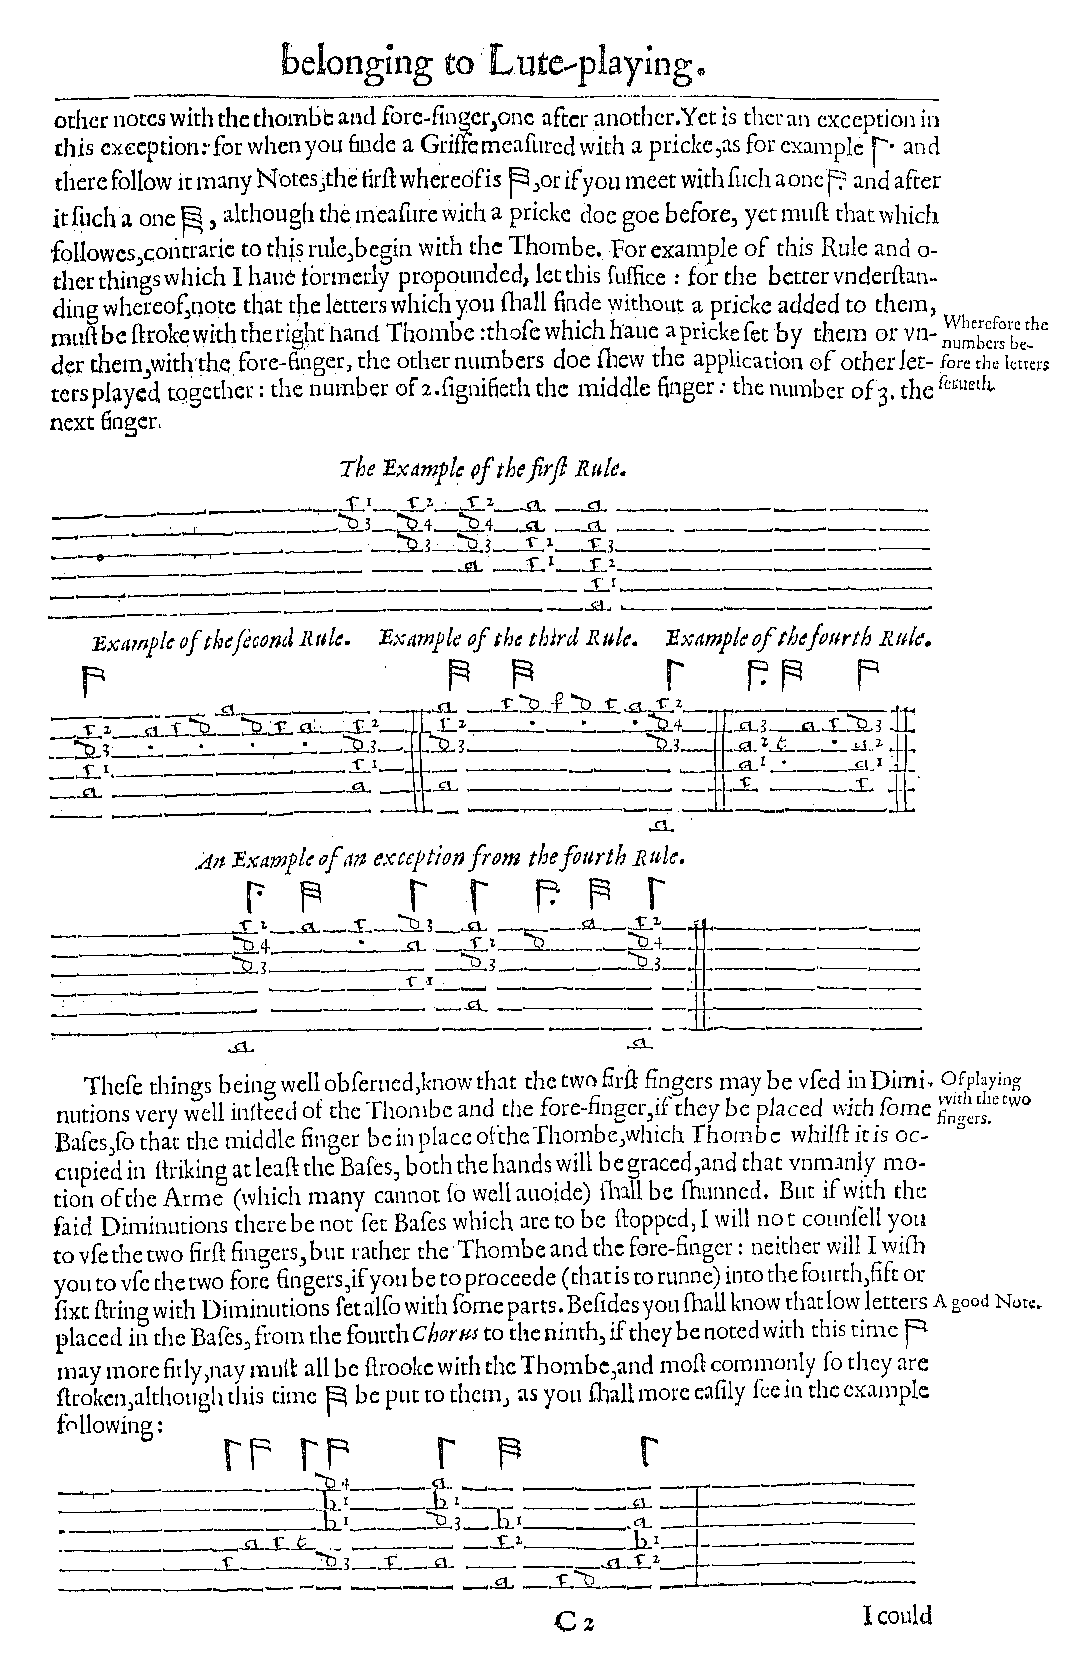 belonging to Lute-playing.
other notes with the thombe and fore-finger,one after another.Yet is ther an exception in
this exception: for when you finde a Griffe meaſured with a pricke,as for example and
there follow it many Notes,the firſt whereof is ,or if you meet with ſuch a one and after
it ſuch a one , although the meaſure with a pricke doe goe before, yet muſt that which
followes,contrarie to this rule,begin with the Thombe. For example of this Rule and o-
ther things which I haue formerly propounded, let this ſuffice : for the better vnderſtan-
ding whereof,note that the letters which you ſhall finde without a pricke added to them,
muſt be ſtroke with the right hand Thombe :thoſe which haue a pricke ſet by them or vn-
Wherefore the
numbers be-
fore the letters
ſerueth.
der them,with the fore-finger, the other numbers doe ſhew the application of other let-
ters played together : the number of 2.ſignifieth the middle finger : the number of 3. the
next finger.
The Example of the firſt Rule.
r1 r2 r2 a a
d3 d4 d4 a a
d3 d3 r2 r3
a r1 r2
r1
a
Example of the ſecond Rule. Example of the third Rule. Example of the fourth Rule.
a a r d f d r a r2
r2 a r d d r a r2 r2 d4 a3 a r d3
d3 d3 d3 d3 a2 e
r1 r1 a1 a1
a a a r r
a
An Example of an exception from the fourth Rule.
r2 a r d3 a a r2
d4 a r2 d d4
d3 d3 d3
r1
a
a a
Theſe things being well obſerued,know that the two firſt fingers may be vſed in Dimi-
Of playing
with the two
fingers.
nutions very well inſteed of the Thombe and the fore-finger,if they be placed with ſome
Baſes,ſo that the middle finger be in place of the Thombe,which Thombe whilſt it is oc-
cupied in ſtriking at leaſt the Baſes, both the hands will be graced,and that vnmanly mo-
tion of the Arme (which many cannot ſo well auoide) ſhall be ſhunned. But if with the
ſaid Diminutions there be not ſet Baſes which are to be ſtopped, I will not counſell you
to vſe the two firſt fingers, but rather the Thombe and the fore-finger : neither will I wiſh
you to vſe the two fore fingers,if you be to proceede (that is to runne) into the fourth,fift or
ſixt ſtring with Diminutions ſet alſo with ſome parts. Beſides you ſhall know that low letters
A good Note.
placed in the Baſes, from the fourth Chorus to the ninth, if they be noted with this time
may more fitly,nay muſt all be ſtrooke with the Thombe,and moſt commonly ſo they are
ſtroken,although this time be put to them, as you ſhall more eaſily ſee in the example
following :
d4 a
b1 b1 a
b1 d3 b1 a
a r e r2 b1
r d3 r a a r2
a r d
C 2
I could